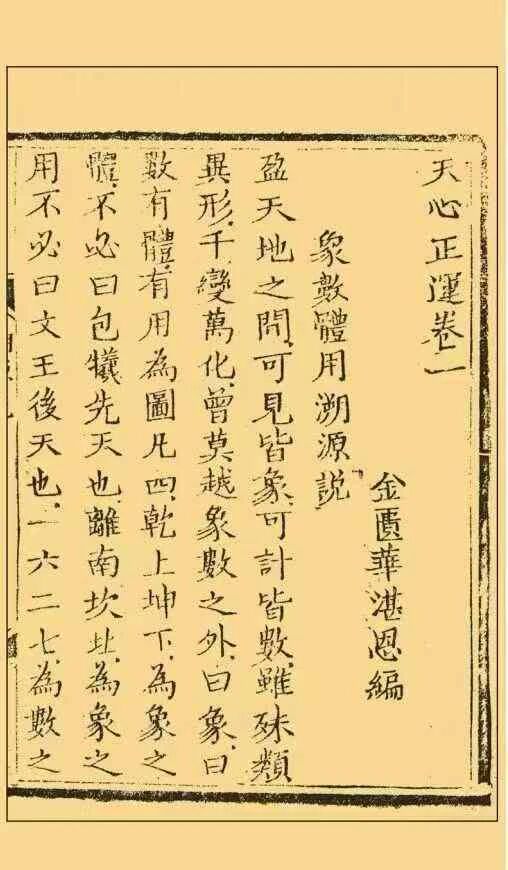 天心正運卷一
金匱華湛恩編
象數體用溯源説
盈天地之間,可見皆象,可計皆數,雖殊類
異形,千變萬化,曾莫越象數之外,曰象,曰
數有體,有用為圖凡四,乾上坤下,為象之
體,不必曰包犧先天也,離南坎北,為象之
用不必曰文王後天也,一六二七,為數之